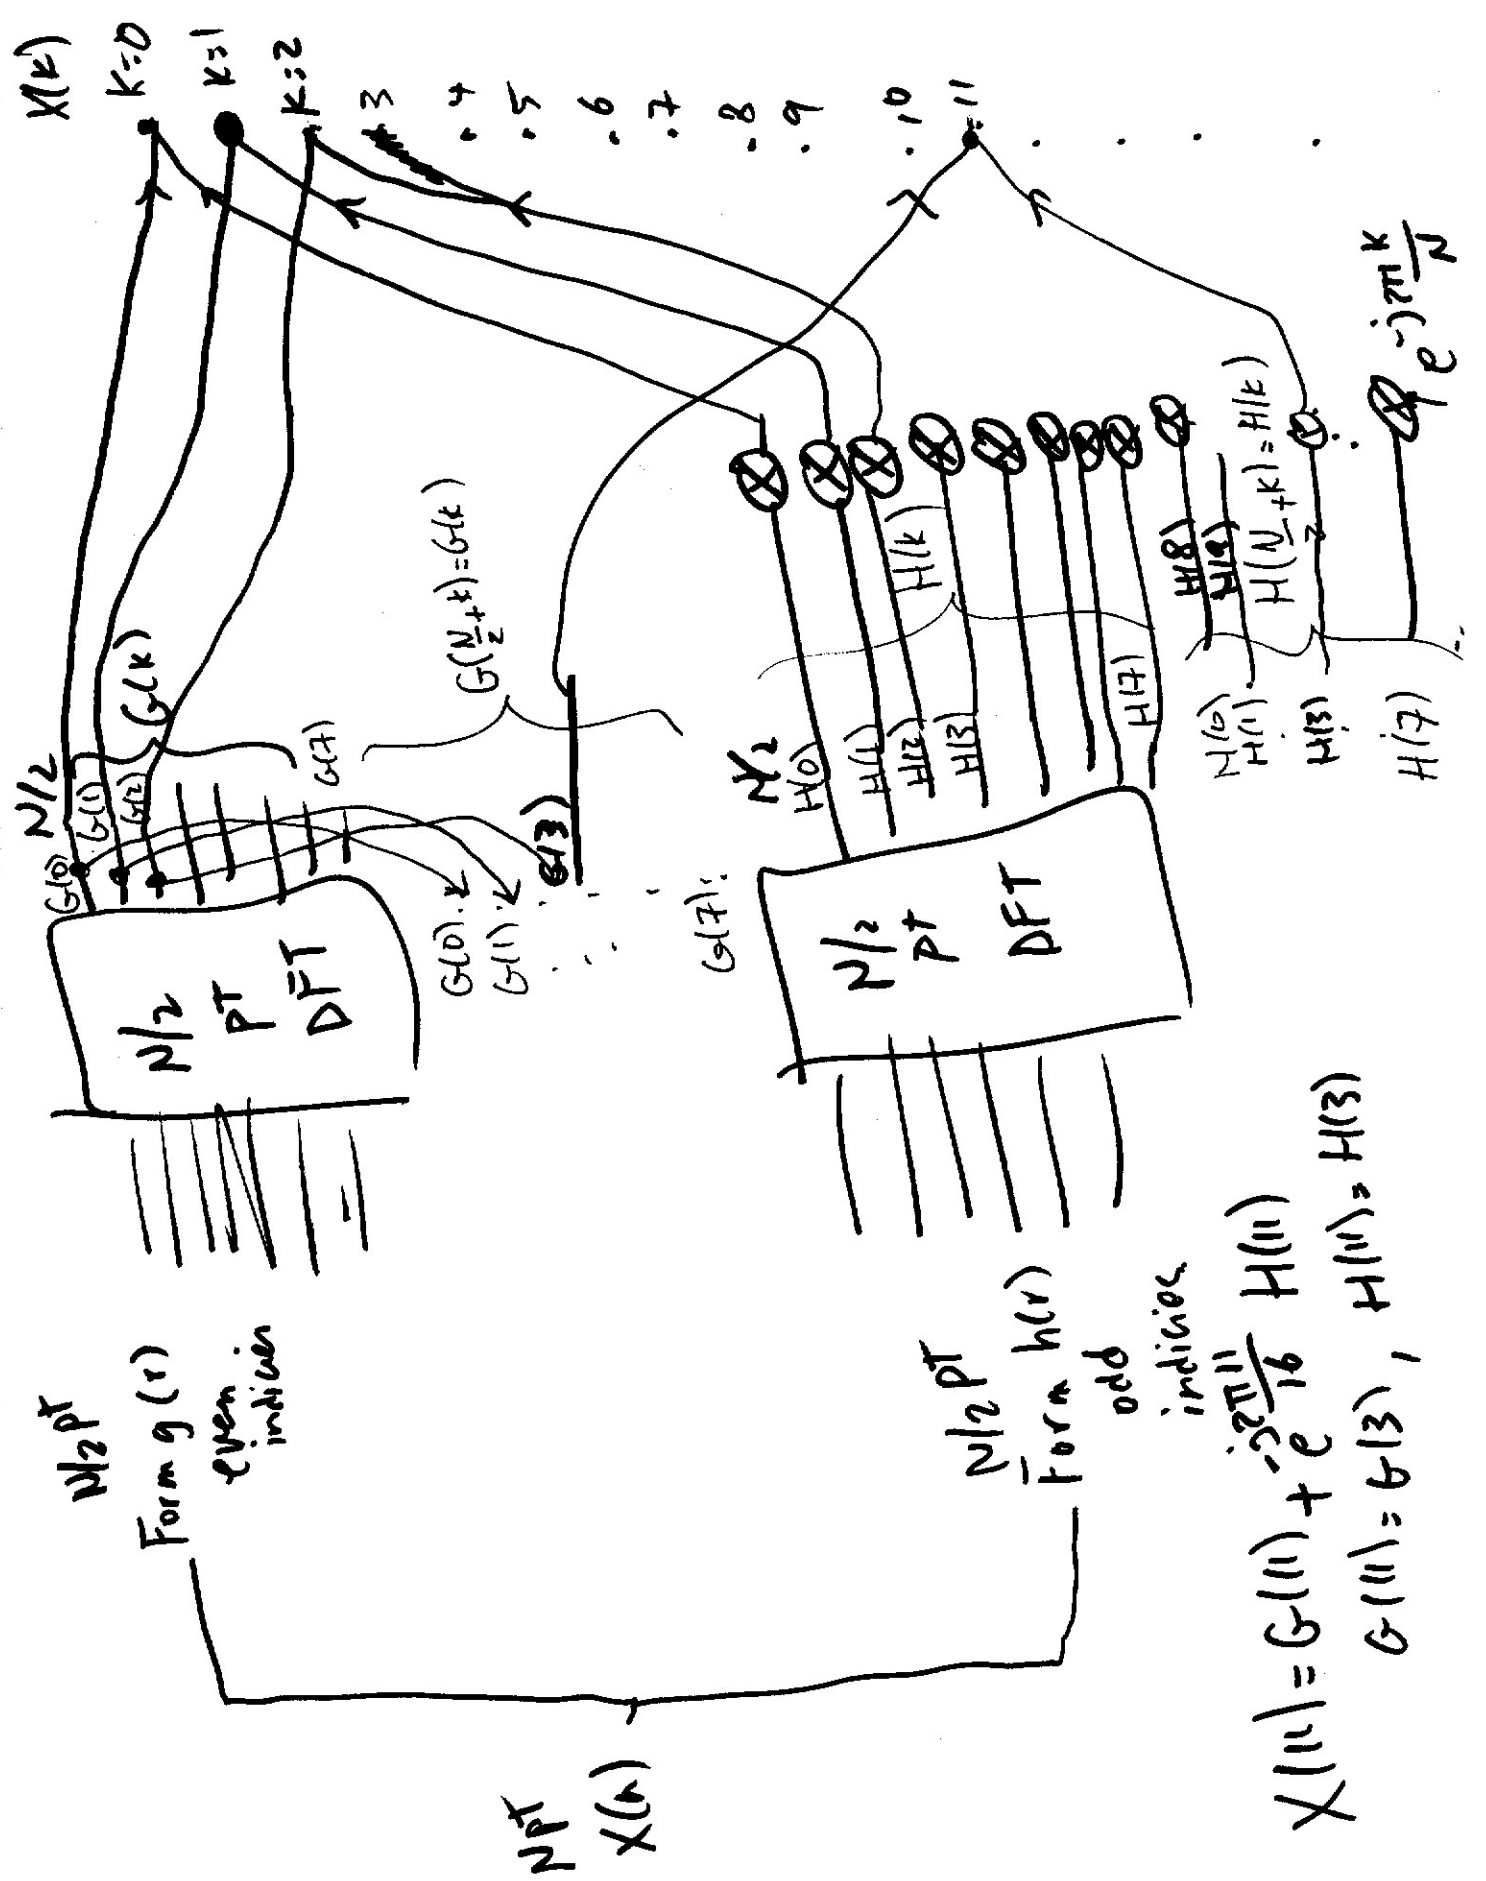 N pt
X(n)
N/2 pt
Form g(r)
even
indicies
N/2 pt
Form h(r)
odd
indicies
N/2
PT
DFT
N/2
pt
DFT
N/2
G(0)
G(1)
G(2)
G(k)
G(7)
G(0)
G(1)
G(3)
G(7)
G(N/2+k)=G(k)
N/2
H(0)
H(1)
H(2)
H(3)
H(7)
H(k)
H(8)
H(9)
H(0)
H(1)
H(3)
H(7)
H(N/2+k)=H(k)
e^-j2π k/N
X(k)
K=0
K=1
K=2
3
4
5
6
7
8
9
10
11
X(11) = G(11) + e^-j2π11/16 H(11)
G(11) = G(3), H(11) = H(3)